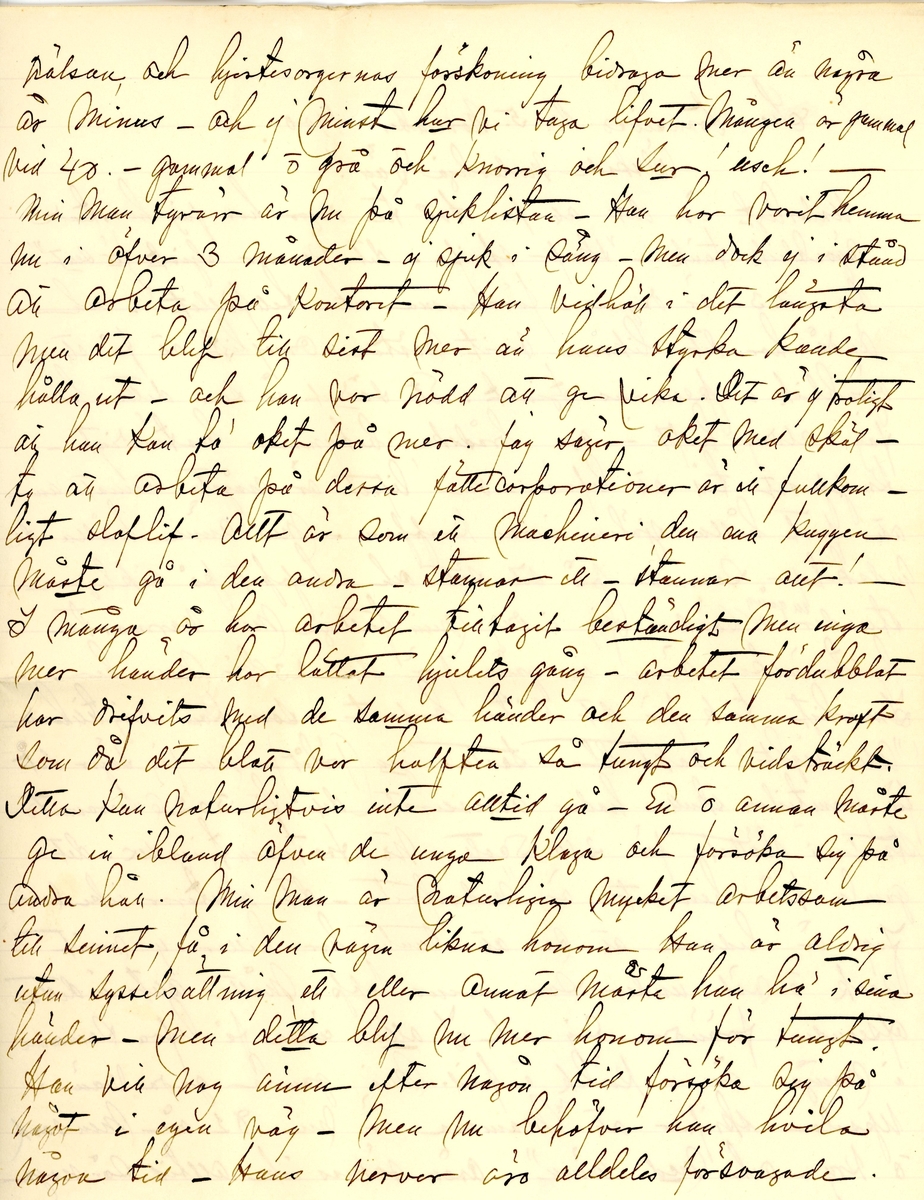 hälsan, och hjertesorgernas förskoning bidraga mer än några
år minus – och ej minst hur vi taga lifvet. Mången är gammal
vid 40. – gammal o grå och knorrig och sur! usch! —
Min man tyvärr är nu på sjuklistan – Han har varit hemma
nu i öfver 3 månader – ej sjuk i säng – men dock ej i stånd
att arbeta på kontoret – Han vidhöll i det längsta
men det blef till sist mer än hans styrka kunde
hålla ut – och han var nödd att ge vika. Det är ej troligt
att han kan ta' oket på mer. Jag säger oket med skäl –
ty att arbeta på dessa jättecorporationer är ett fullkom–
ligt slaflif. Allt är som ett machineri den ena kuggen
måste gå i den andra – stannar ett – stannar allt! —
I många år har arbetet tilltagit beständigt men inga
mer händer har lättat hjulets gång – arbetet fördubblat
har drifvits med de samma händer och den samma kraft
som då det blott var hälften så tungt och vidsträckt.
Detta kan naturligtvis inte alltid gå – En o annan måste
ge in ibland äfven de unga klaga och försöka sig på
andra håll. Min man är naturligen mycket arbetssam
till sinnet, få i den vägen likna honom Han är aldrig
utan sysselsättning ett eller annat måste han ha' i sina
händer – men detta blef nu mer honom för tungt.
Han vill nog ännu efter någon tid försöka sig på
något i egen väg – men nu behöfver han hvila
någon tid – Hans nerver äro alldeles försvagade.